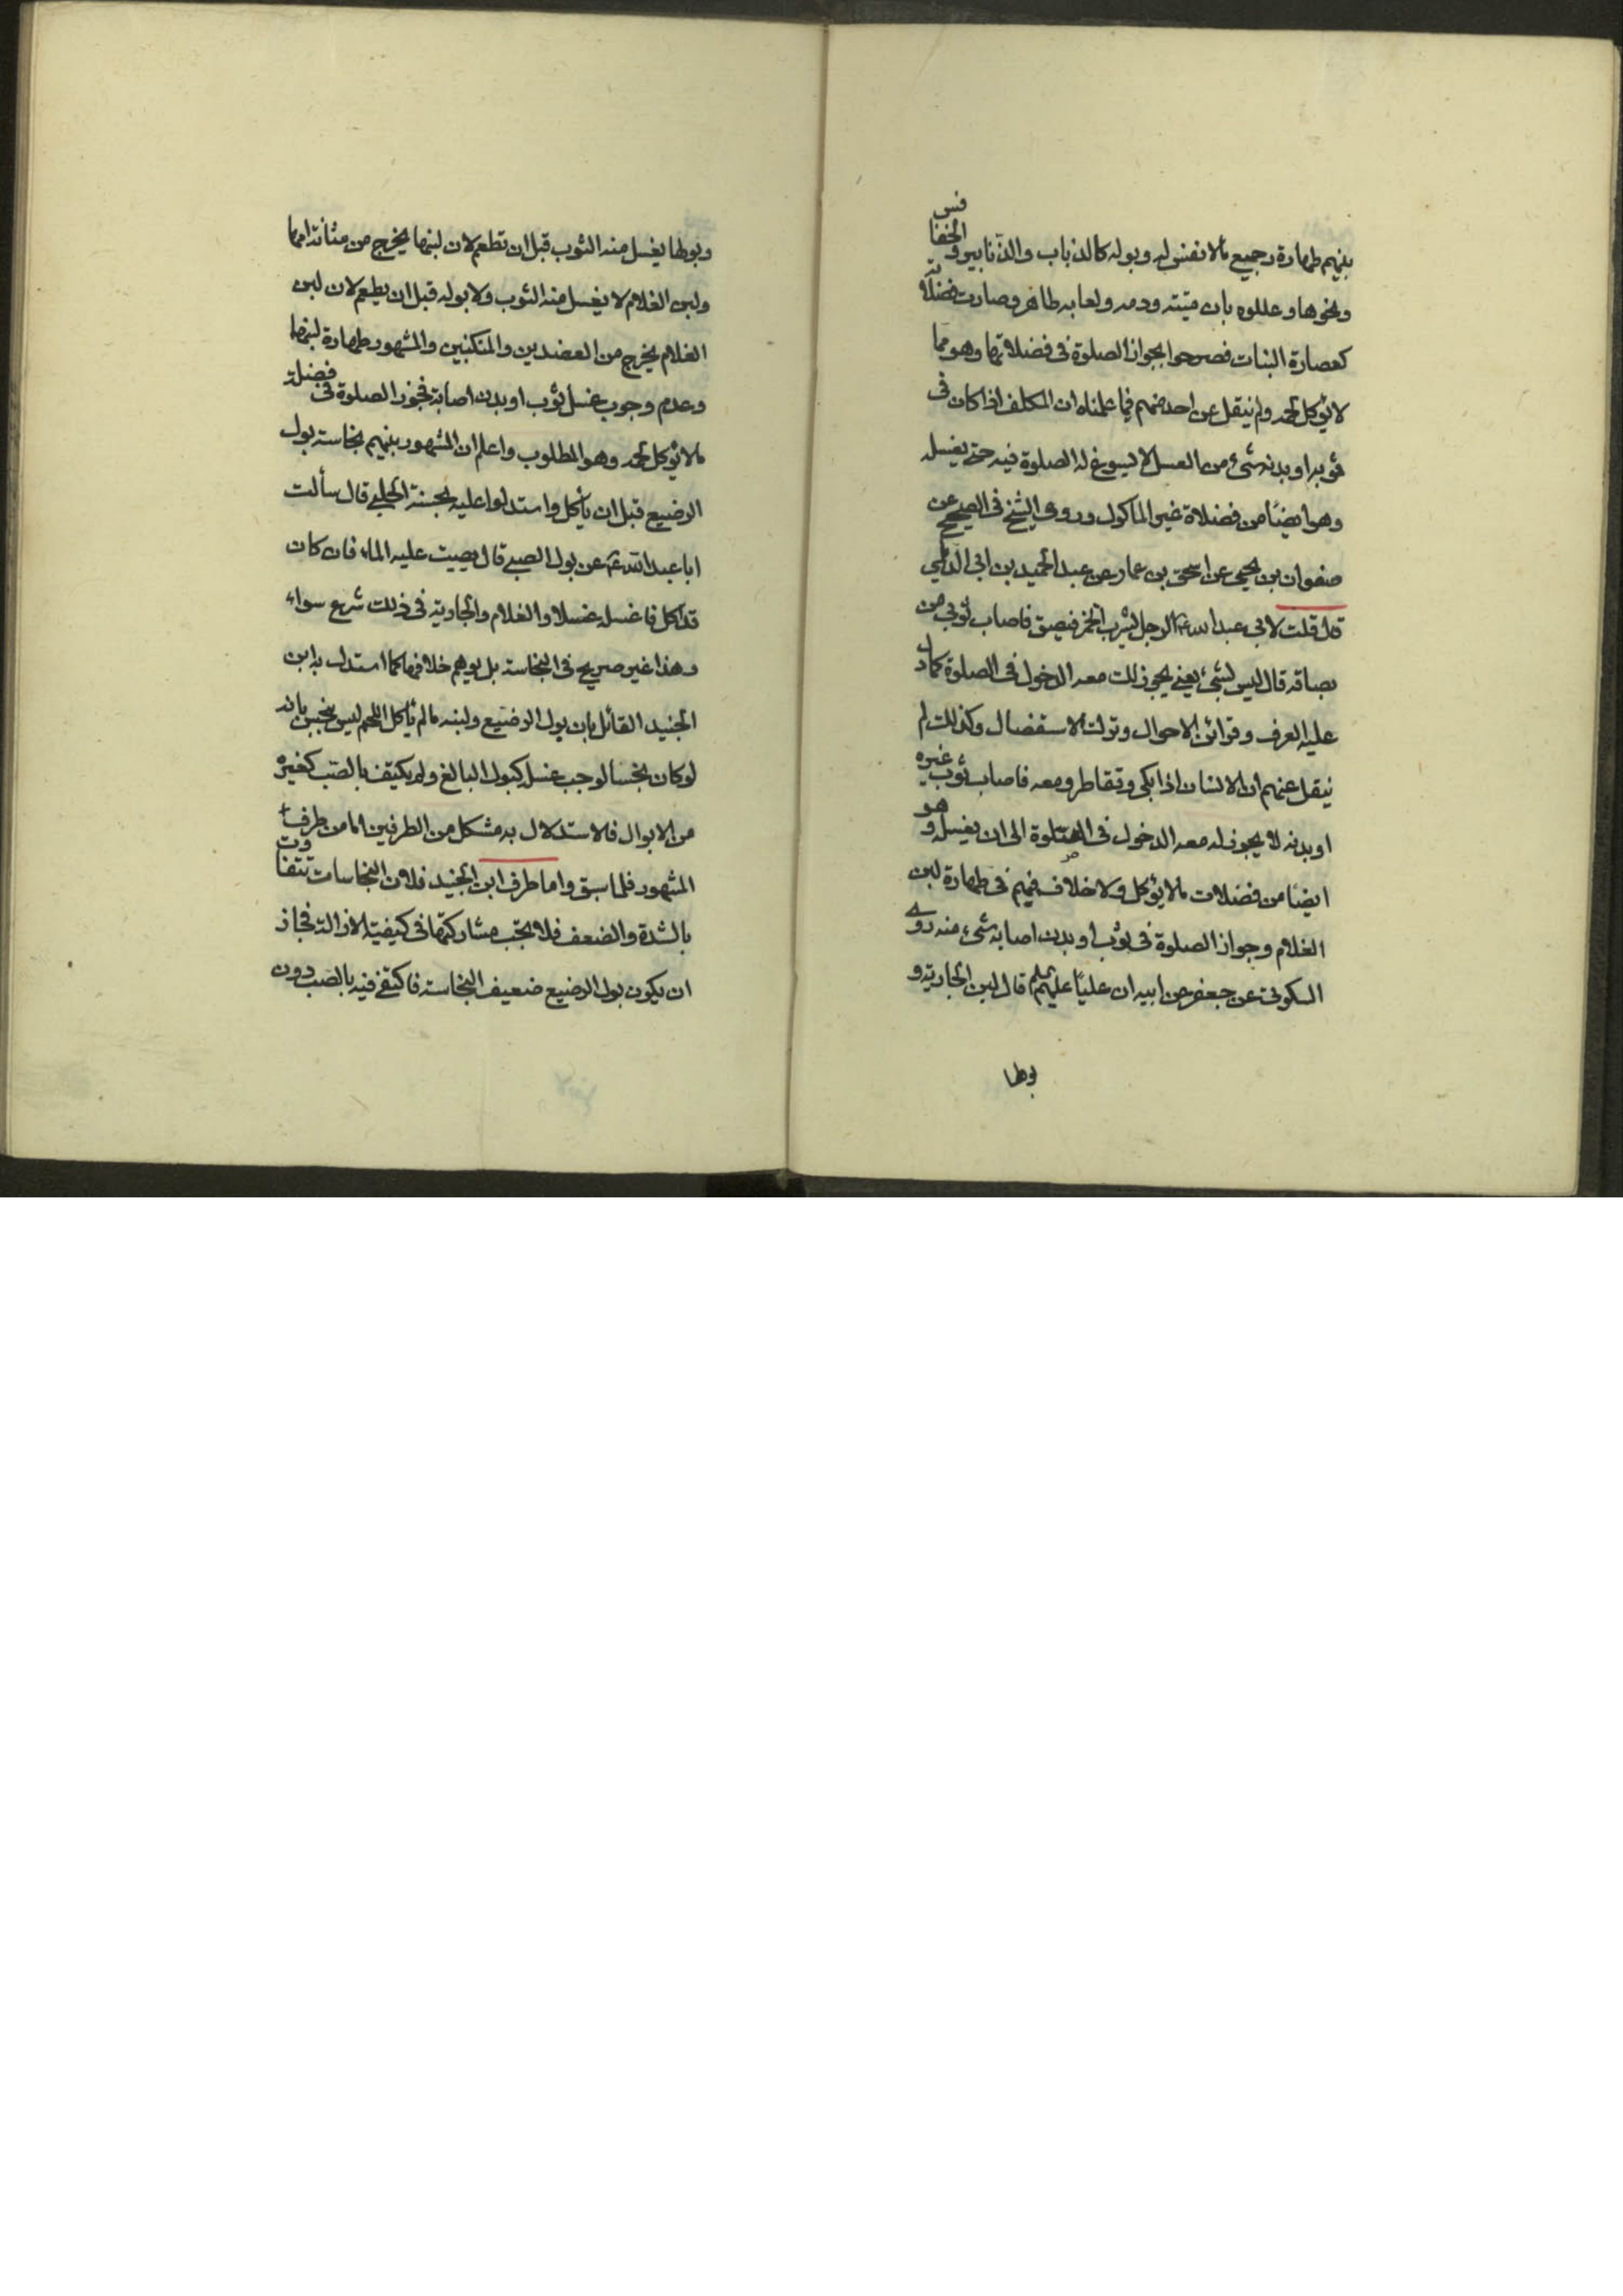 بينهم طهارة رجيع مالا نفس له وبوله كالذباب والذنابير والخنافس
ونحوها وعللوه بان ميتته ودمه ولعابه طاهر وصارت فضلاته
كعصارة النبات فصرحوا بجواز الصلوة فى فضلاتها وهو مما
لا يؤكل لحمه ولم ينقل عن احد منهم فيما علمناه ان المكلف اذا كان فى
ثوبه او بدنه شئ من العسل لا يسوغ له الصلوة فيه حتى يغسله
وهو ايضا من فضلاة غير الماكول وروى الشيخ فى الصحيح عن
صفوان بن يحيى عن اسحق بن عمار عن عبد الحميد بن ابى الديلمي
قال قلت لابى عبد الله ع الرجل يشرب الخمر فيبصق فاصاب ثوبى من
بصاقه قال ليس بشئ يعنى يجوز لك معه الدخول فى الصلوة كما دل
عليه العرف وقرائن الاحوال وترك الاستفصال وكذلك لم
ينقل عنهم ان الانسان اذا بكى وتقاطر ومعه فاصاب ثوب غيره
او بدنه لا يجوز له معه الدخول فى الصلوة الى ان يغسله وهو
ايضا من فضلات مالا يؤكل ولا خلاف فيهم فى طهارة لبن
الغلام وجواز الصلوة فى ثوب او بدن اصابه شئ منه روى
السكونى عن جعفر عن ابيه ان عليا عليهم قال لبن الجارية و
بولها
وبولها يغسل منه الثوب قبل ان تطعم لان لبنها يخرج من مثانة امها
ولبن الغلام لا يغسل منه الثوب ولا بوله قبل ان يطعم لان لبن
الغلام يخرج من العضدين والمنكبين والمشهور طهارة لبنها
وعدم وجوب غسل ثوب او بدن اصابه فتجوز الصلوة فى فضلة
مالا يؤكل لحمه وهو المطلوب واعلم ان المشهور بينهم نجاسة بول
الرضيع قبل ان يأكل واستدلوا عليه بحسنة الحلبي قال سألت
ابا عبد الله ع عن بول الصبي قال يصب عليه الماء فان كان
قد اكل فاغسله غسلا والغلام والجارية فى ذلك شرع سواء
وهذا غير صريح فى النجاسة بل يوهم خلافها كما استدل به ابن
الجنيد القائل بان بول الرضيع ولبنه مالم يأكل اللحم ليس بنجس بانه
لو كان نجسا لوجب غسله كبول البالغ ولم يكتف بالصب كغيره
من الابوال فالاستدلال به مشكل من الطرفين اما من طرف
المشهور فلما سبق واما طرف ابن الجنيد فلان النجاسات تتفاوت
بالشدة والضعف فلا يجب مشاركتها فى كيفية الازالة فجاز
ان يكون بول الرضيع ضعيف النجاسة فاكتفى فيه بالصب دون